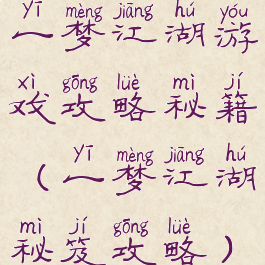 yī mèng jiāng hú yóu
一梦江湖游
xì gōng lüè mì jí
戏攻略秘籍
yī mèng jiāng hú
（一梦江湖
mì jí gōng lüè
秘笈攻略）